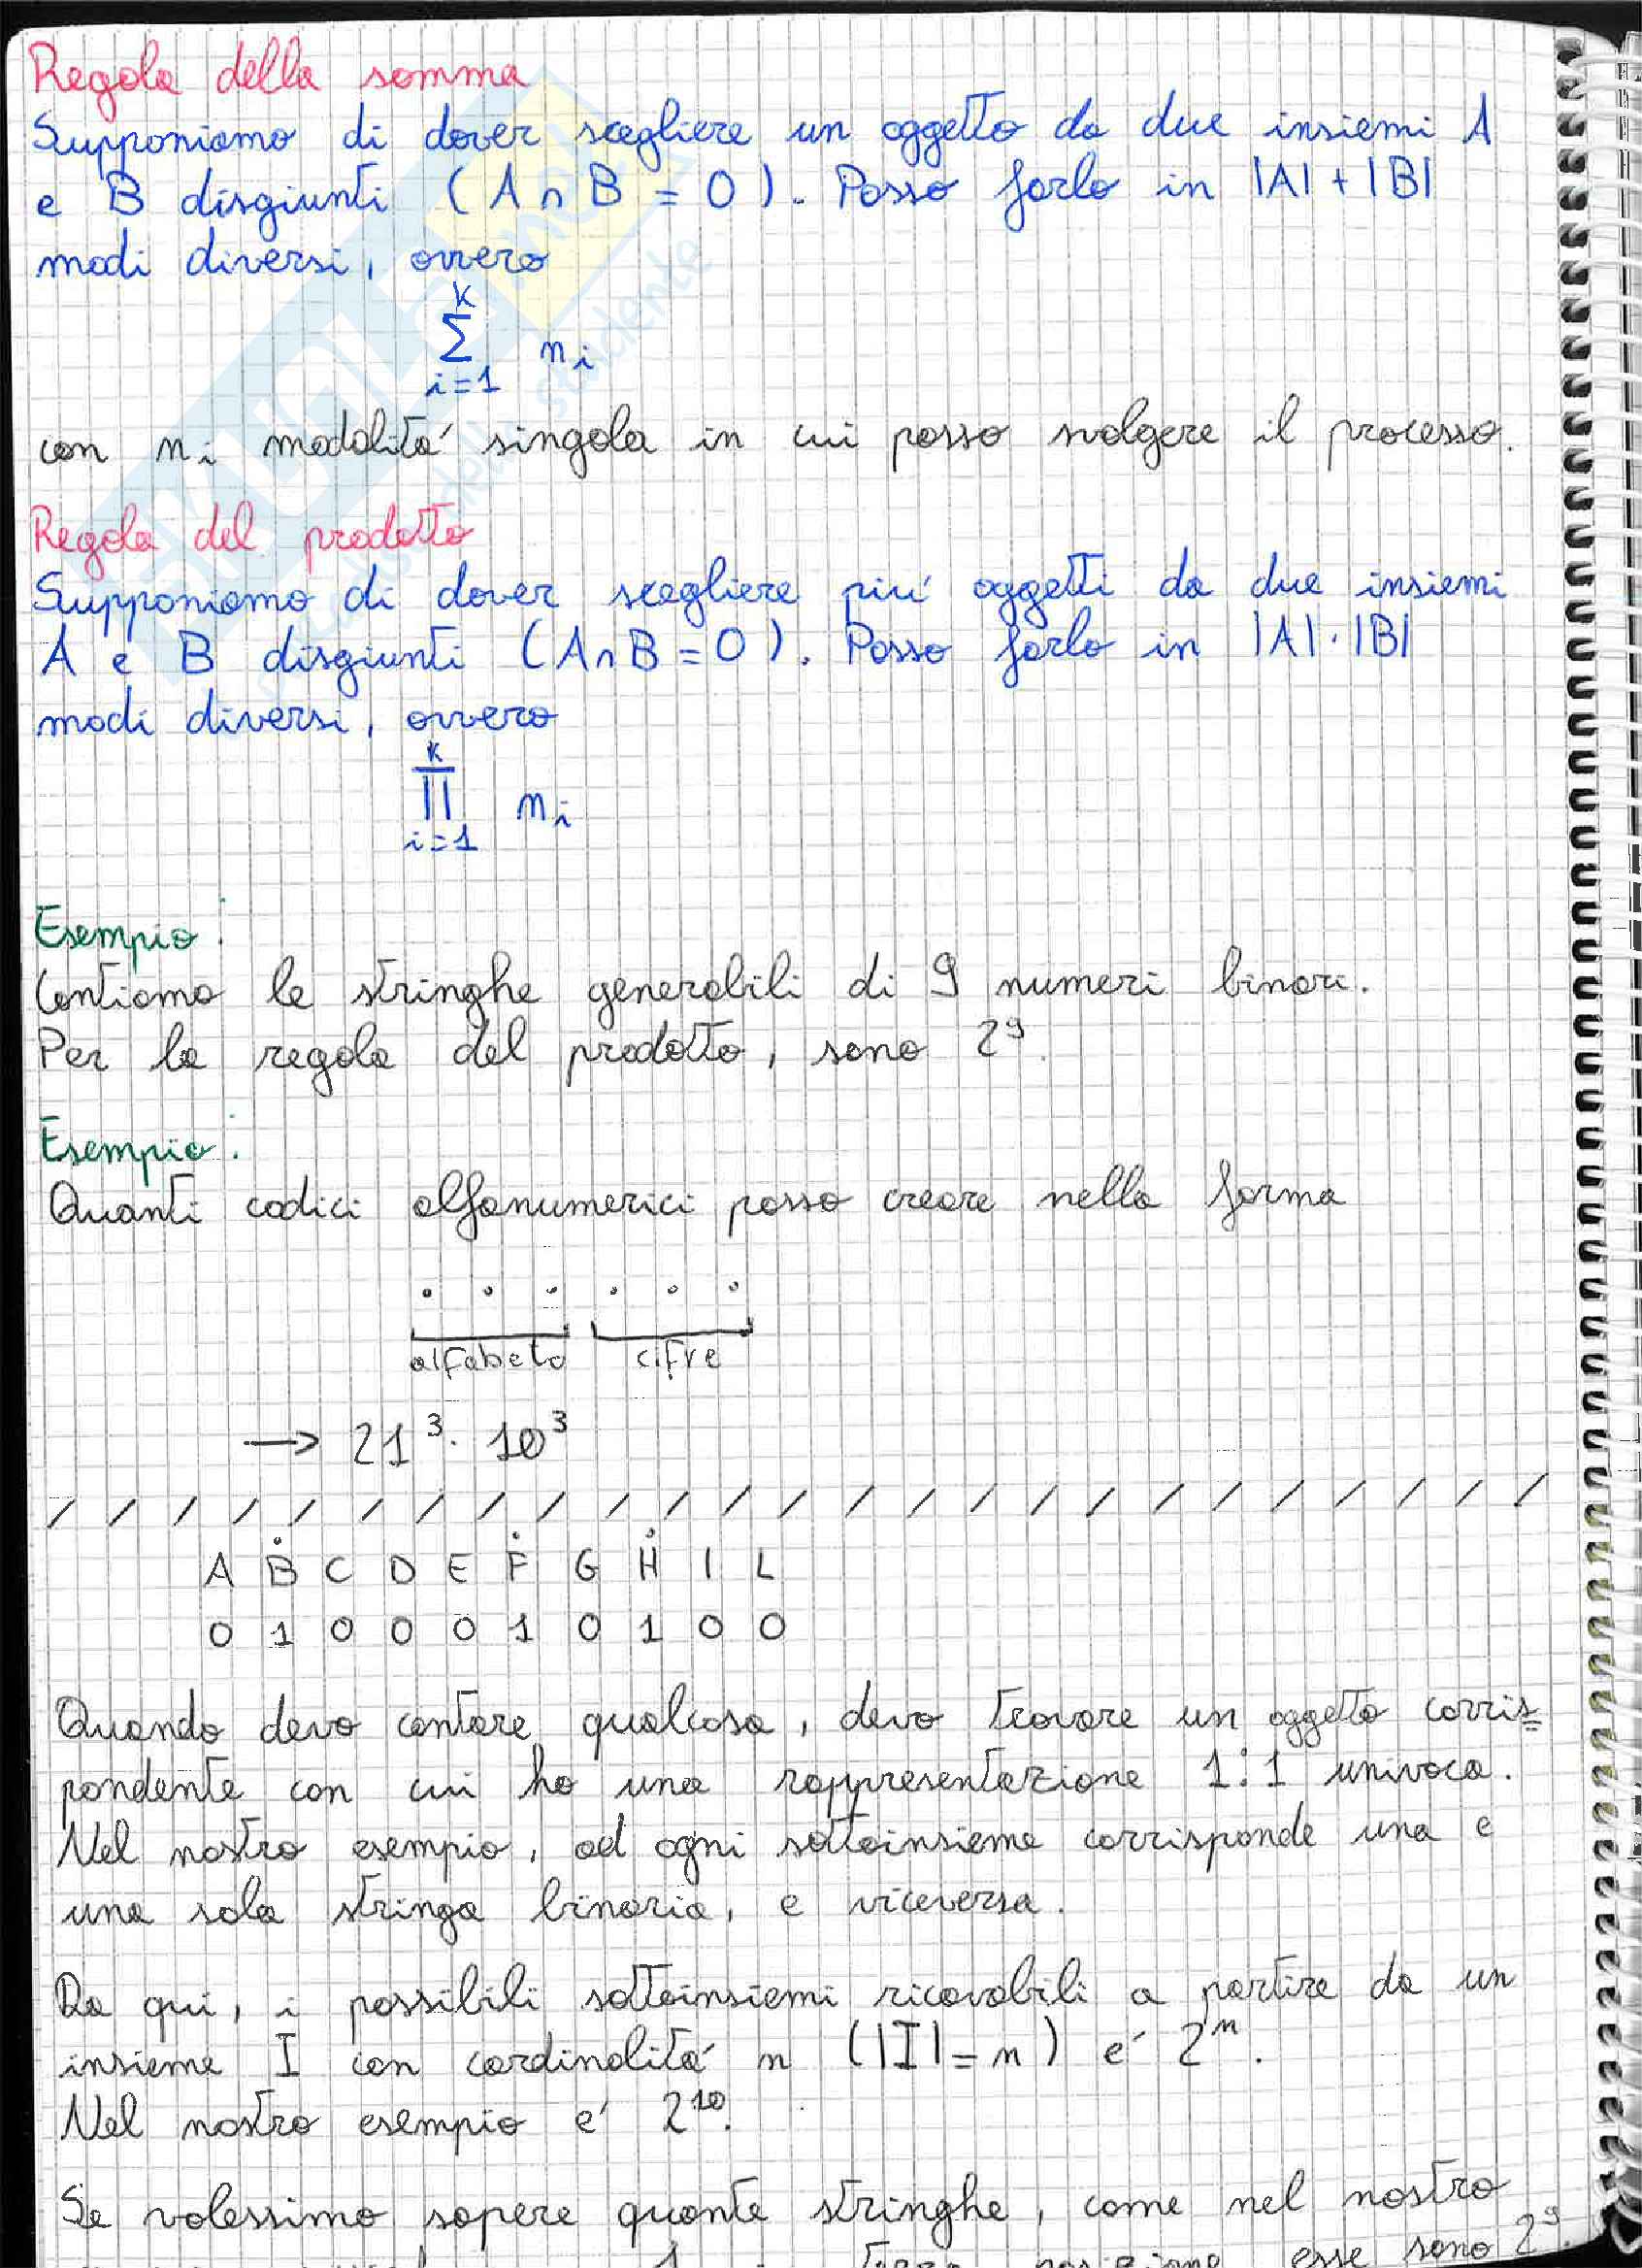 Regola della somma
Supponiamo di dover scegliere un oggetto da due insiemi A
e B disgiunti (A ∩ B = 0). Posso farlo in |A| + |B|
modi diversi, ovvero
K
Σ n i
i=1
con n i modalità singola in cui posso svolgere il processo.
Regola del prodotto
Supponiamo di dover scegliere più oggetti da due insiemi
A e B disgiunti (A ∩ B = 0). Posso farlo in |A| · |B|
modi diversi, ovvero
K
∏ n i
i=1
Esempio:
Contiamo le stringhe generabili di 9 numeri binari.
Per la regola del prodotto, sono 2⁹.
Esempio:
Quanti codici alfanumerici posso creare nella forma
. . . . . .
alfabeto cifre
→ 21³ · 10³
/ / / / / / / / / / / / / / / / / / / / / / / / / /
A Ḃ C D E Ḟ G Ḣ I L
0 1 0 0 0 1 0 1 0 0
Quando devo contare qualcosa, devo trovare un oggetto corris=
pondente con cui ho una rappresentazione 1:1 univoca.
Nel nostro esempio, ad ogni sottoinsieme corrisponde una e
una sola stringa binaria, e viceversa.
Da qui, i possibili sottoinsiemi ricavabili a partire da un
insieme I con cardinalità n (|I| = n) é 2ⁿ.
Nel nostro esempio é 2¹⁰.
Se volessimo sapere quante stringhe, come nel nostro
1 in terza posizione, esse sono 2⁹.